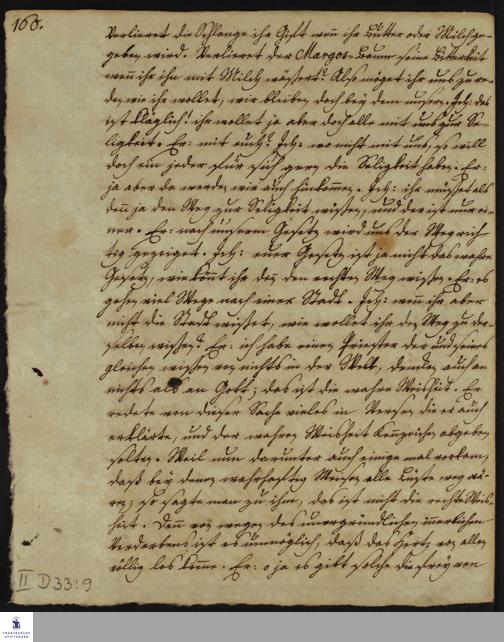 168.
Verlieret die Schlange ihr Gift wenn ihr Butter oder Milch ge-
geben wird. Verlieret der Margos-Baum seine Bitterkeit
wenn ihr ihn mit Milch wässert? Also möget ihr uns zu re-
den wie ihr wollet, wir bleiben doch bey dem unsern. Ich: das
ist kläglich! ihr wollet ja aber doch alle mit uns zur Se-
ligkeit. Er: mit euch? Ich: wo nicht mit uns, so will
doch ein jeder für sich gern die Seligkeit haben. Er:
ja aber da werden wir auch hinkommen. Ich: ihr müsset als
denn ja den Weg zur Seligkeit wissen, und der ist nur ei-
ner. Er: nach unserm Gesetz wird uns der Weg rich-
tig gezeiget. Ich: euer Gesetz ist ja nicht das wahre
Gesetz, wie könnt ihr den rechten Weg wissen. Er: es
gehen viel Wege nach einer Stadt. Ich: wenn ihr aber
nicht die Stadt wisset, wie wollet ihr den Weg zu der-
selben wissen? Er: ich habe einen Priester der und seines
gleichen wissen von nichts in der Welt, dencken auch an
nichts als an Gott; das ist die wahre Weisheit. Er
redete von dieser Sache vieles in Versen die er auch
erklärte, und der wahren Weisheit Kennzeichen abgeben
solten. Weil nun darunter auch einige mal vorkam,
daß bey denen wahrhafftig Weisen alle Lüste weg wä-
ren; so sagte man zu ihm, das ist nicht die rechte Weis-
heit. Denn wegen des unergründlichen innerlichen
Verderbens ist es unmöglich, daß das Hertz von allen
völlig los käme. Er: o ja es gibt solche die frey von
II D33:9
FRANCKESCHE
STIFTUNGEN